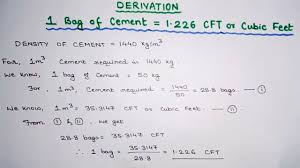 DERIVATION
1 Bag of Cement = 1.226 CFT or Cubic Feet
DENSITY OF CEMENT = 1440 kg/m³
For, 1m³ Cement required is 1440 kg.
We know, 1 bag of Cement = 50 kg
For 1m³, Cement required = 1440/50 = 28.8 bags - ①
We know, 1m³ = 35.3147 CFT - ②
From ① & ②, we get
28.8 bags = 35.3147 CFT
∴ 1 bag = 35.3147/28.8 = 1.226 CFT